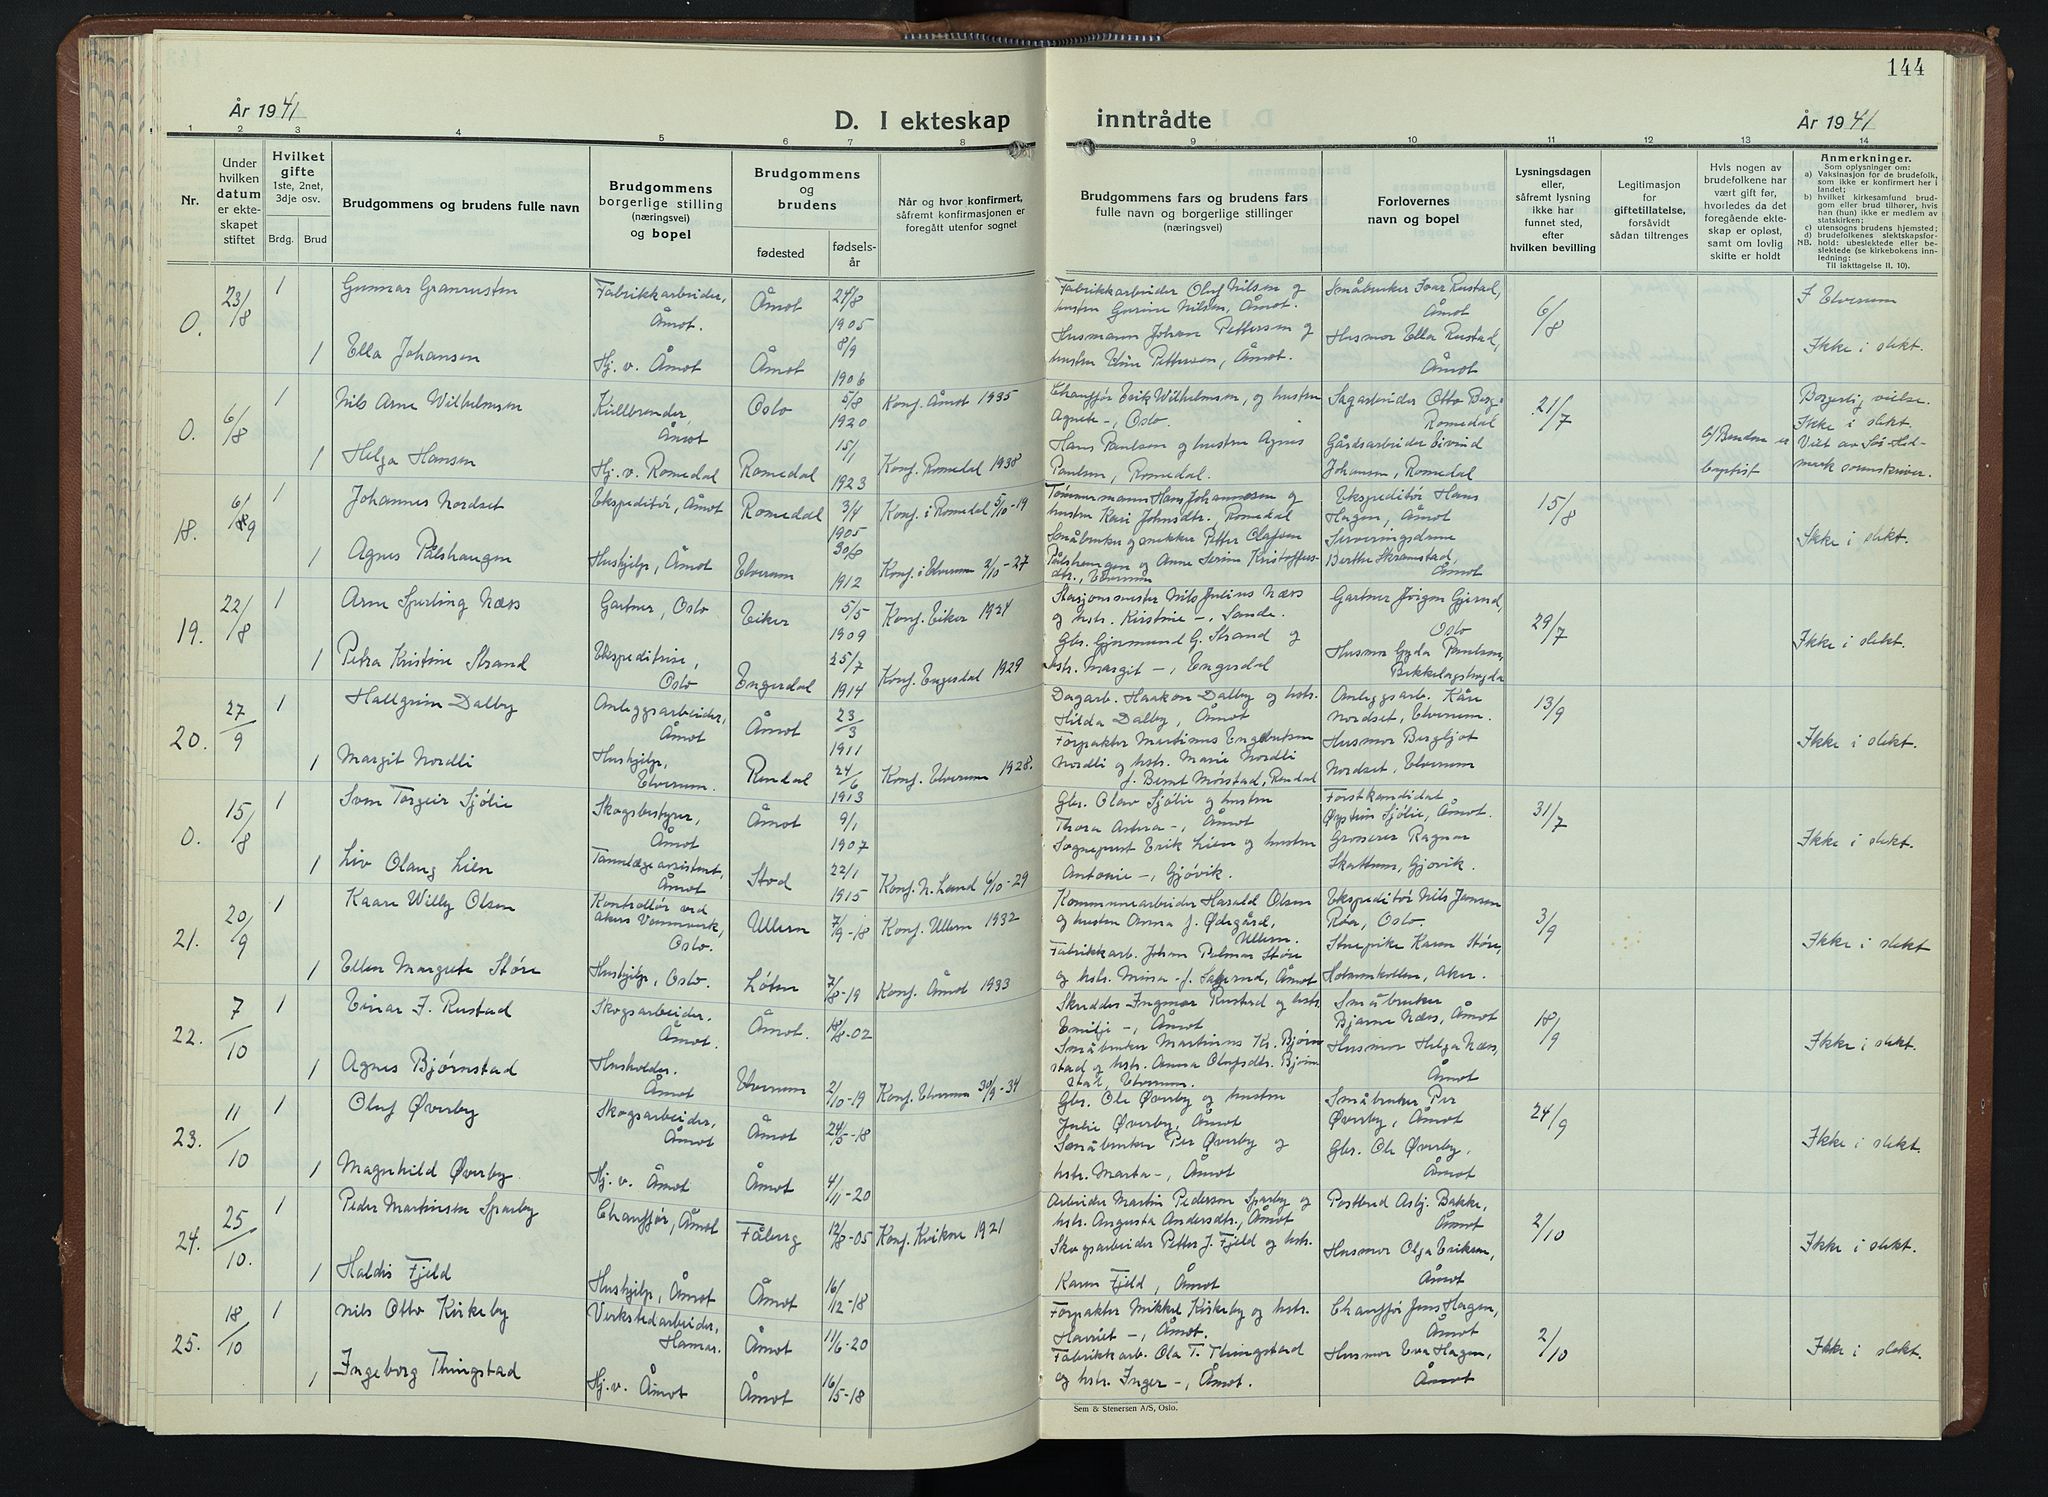 144
År 1941
D. I ekteskap
inntrådte
År 1941
1 2 3 4 5 6 7 8 9 10 11 12 13 14
Nr.
Under hvilken datum er ekteskapet stiftet
Hvilket gifte
1ste, 2net, 3dje osv.
Brdg. Brud
Brudgommens og brudens fulle navn
Brudgommens borgerlige stilling (næringsvei) og bopel
Brudgommens og brudens
fødested
fødselsår
Når og hvor konfirmert, såfremt konfirmasjonen er foregått utenfor sognet
Brudgommens fars og brudens fars fulle navn og borgerlige stillinger (næringsvei)
Forlovernes navn og bopel
Lysningsdagen eller, såfremt lysning ikke har funnet sted, efter hvilken bevilling
Legitimasjon for giftetillatelse, forsåvidt sådan tiltrenges
Hvis nogen av brudefolkene har vært gift før, hvorledes da det foregående ekteskap er opløst, samt om lovlig skifte er holdt
Anmerkninger.
Som oplysning om:
a) Vaksinasjon for de brudefolk, som ikke er konfirmert her i landet;
b) hvilket kirkesamfund brudgom eller brud tilhører, hvis han (hun) ikke er medlem av statskirken;
c) utensogns brudens hjemsted;
d) brudefolkenes slektskapsforhold: ubeslektede eller beslektede (se kirkebokens innledning:
NB.
Til iakttagelse II. 10).
0. 23/8 1 Gunnar Granrusten Fabrikkarbeider, Åmot. Åmot 24/8 1905 Fabrikkarbeider Oluf Nilsen og hustru Gurine Nilsen, Åmot. Småbruker Ivar Rustad, Åmot 6/8 I Elverum
1 Ella Johansen Hj. v. Åmot Åmot 8/9 1906 Husmann Johan Pettersen og hustru Eline Pettersen, Åmot. Husmor Ella Rustad, Åmot Ikke i slekt.
0. 6/8 1 Nils Arne Wilhelmsen Kullbrender, Åmot Oslo 5/8 1920 Konf. Åmot 1935 Chauffør Erik Wilhelmsen, og hustru Agnete -, Oslo. Sagarbeider Otto Berg, Romedal 21/7 Borgerlig vielse. Ikke i slekt.
1 Helga Hansen Hj. v. Romedal Romedal 15/1 1923 Konf. Romedal 1938 Hans Paulsen og hustru Agnes Paulsen, Romedal. Gårdsarbeider Eivind Johansen, Romedal b/ Bruden er baptist Viet av Sør-Hedmark sorenskriver.
18. 6/9 1 Johannes Nordset Ekspeditør, Åmot Romedal 3/4 1905 Konf. i Romedal 5/10-19 Tømmermann Hans Johannesen og hustru Kari Johnsdtr., Romedal Ekspeditør Hans Hagen, Åmot 15/8
1 Agnes Pålshaugen Hushjelp, Åmot Elverum 30/8 1912 Konf. i Elverum 2/10-27 Småbruker og snekker Petter Olafsen Pålshaugen og Anne Serine Kristoffersdtr., Elverum Serveringsdame Berthe Skramstad, Åmot Ikke i slekt.
19. 22/8 1 Arne Sperling Næss Gartner, Oslo Eiker 5/5 1909 Konf. Eiker 1924 Stasjonsmester Nils Julius Næss og hstr. Kirstine -, Sande. Gartner Jørgen Gjerud, Oslo 29/7
1 Petra Kristine Strand Ekspeditrise, Oslo Engerdal 25/7 1914 Konf. Engerdal 1929 Gbr. Gjermund G. Strand og hstr. Margit -, Engerdal Husmor Gyda Paulsen, Bekkelagshøgda Ikke i slekt.
20. 27/9 1 Hallgrim Dalby Anleggsarbeider, Åmot Åmot 23/3 1911 Dagarb. Haakon Dalby og hstr. Hilda Dalby, Åmot Anleggsarb. Kåre Nordset, Elverum. 13/9
1 Margit Nordli Hushjelp, Elverum. Rendal 24/6 1913 Konf. Elverum 1928. Forpakter Martinus Engebretsen Nordli og hstr. Marie Nordli f. Bernt Mørstad, Rendal Husmor Bergljot Nordset, Elverum Ikke i slekt.
0. 15/8 1 Sven Torgeir Sjølie Skogbestyrer, Åmot Åmot 9/1 1907 Gbr. Olav Sjølie og hustru Thora Astera -, Åmot Forstkandidat Øystein Sjølie, Åmot. 31/7
1 Liv Olaug Lien Tannlægeassistent, Åmot Stod 22/1 1915 Konf. N. Land 6/10-29 Sogneprest Erik Lien og hustru Antonie -, Gjøvik. Grosserer Ragnar Skattum, Gjøvik. Ikke i slekt.
21. 20/9 1 Kaare Willy Olsen Kontrollør ved Akers Vannverk, Oslo. Ullern 7/9-18 Konf. Ullern 1932 Kommunearbeider Harald Olsen og hustru Anna f. Ødegård, Ullern. Ekspeditør Nils Jansen Røa, Oslo. 3/9
1 Ellen Margrete Støre Hushjelp, Oslo. Løten 7/8-19 Konf. Åmot 1933 Fabrikkarb. Johan Palmar Støre og hstr. Mina - f. Sagerud, Åmot Stuepike Karen Støre, Holmenkollen, Aker. Ikke i slekt
22. 7/10 1 Einar J. Rustad Skogsarbeider, Åmot. Åmot. 18/8-02 Skredder Ingmar Rustad og hstr. Emilje -, Åmot Småbruker Bjarne Næss, Åmot 18/9
1 Agnes Bjørnstad Husholder. Åmot Elverum 2/10-19 Konf. Elverum 30/9-34 Småbruker Martinus Kr. Bjørnstad og hstr. Anna Olufsdtr. Bjørnstad, Elverum. Husmor Helga Næss, Åmot Ikke i slekt.
23. 11/10 1 Oluf Øverby Skogsarbeider, Åmot Åmot 24/5-18 Gbr. Ole Øverby og hustru Julie Øverby, Åmot Småbruker Per Øverby, Åmot 24/9
1 Magnhild Øverby Hj. v. Åmot Åmot 4/11-20 Småbruker Per Øverby og hstr. Marta -, Åmot Gbr. Ole Øverby, Åmot Ikke i slekt.
24. 25/10. 1 Peder Martinsen Sparby Chauffør, Åmot Fåberg 12/8-05 Konf. Kvikne 1921 Arbeider Martin Pedersen Sparby og hstr. Augusta Andersdtr., Åmot Postbud Asbj. Bakke, Åmot 2/10
1 Haldis Fjeld Hushjelp, Åmot Åmot 16/12-18 Skogsarbeider Petter J. Fjeld og hstr. Karen Fjeld, Åmot Husmor Olga Eriksen, Åmot Ikke i slekt.
25. 18/10 1 Nils Otto Kirkeby Verkstedarbeider, Hamar. Åmot 11/6-20 Forpakter Mikkel Kirkeby og hstr. Harriet -, Åmot. Chauffør Jens Hagen, Åmot 2/10
1 Ingeborg Thingstad Hj. v. Åmot Åmot 16/5-18 Fabrikkarb. Ola T. Thingstad og hstr. Inger -, Åmot. Husmor Eva Hagen, Åmot Ikke i slekt.
Sem & Stenersen A/S, Oslo.